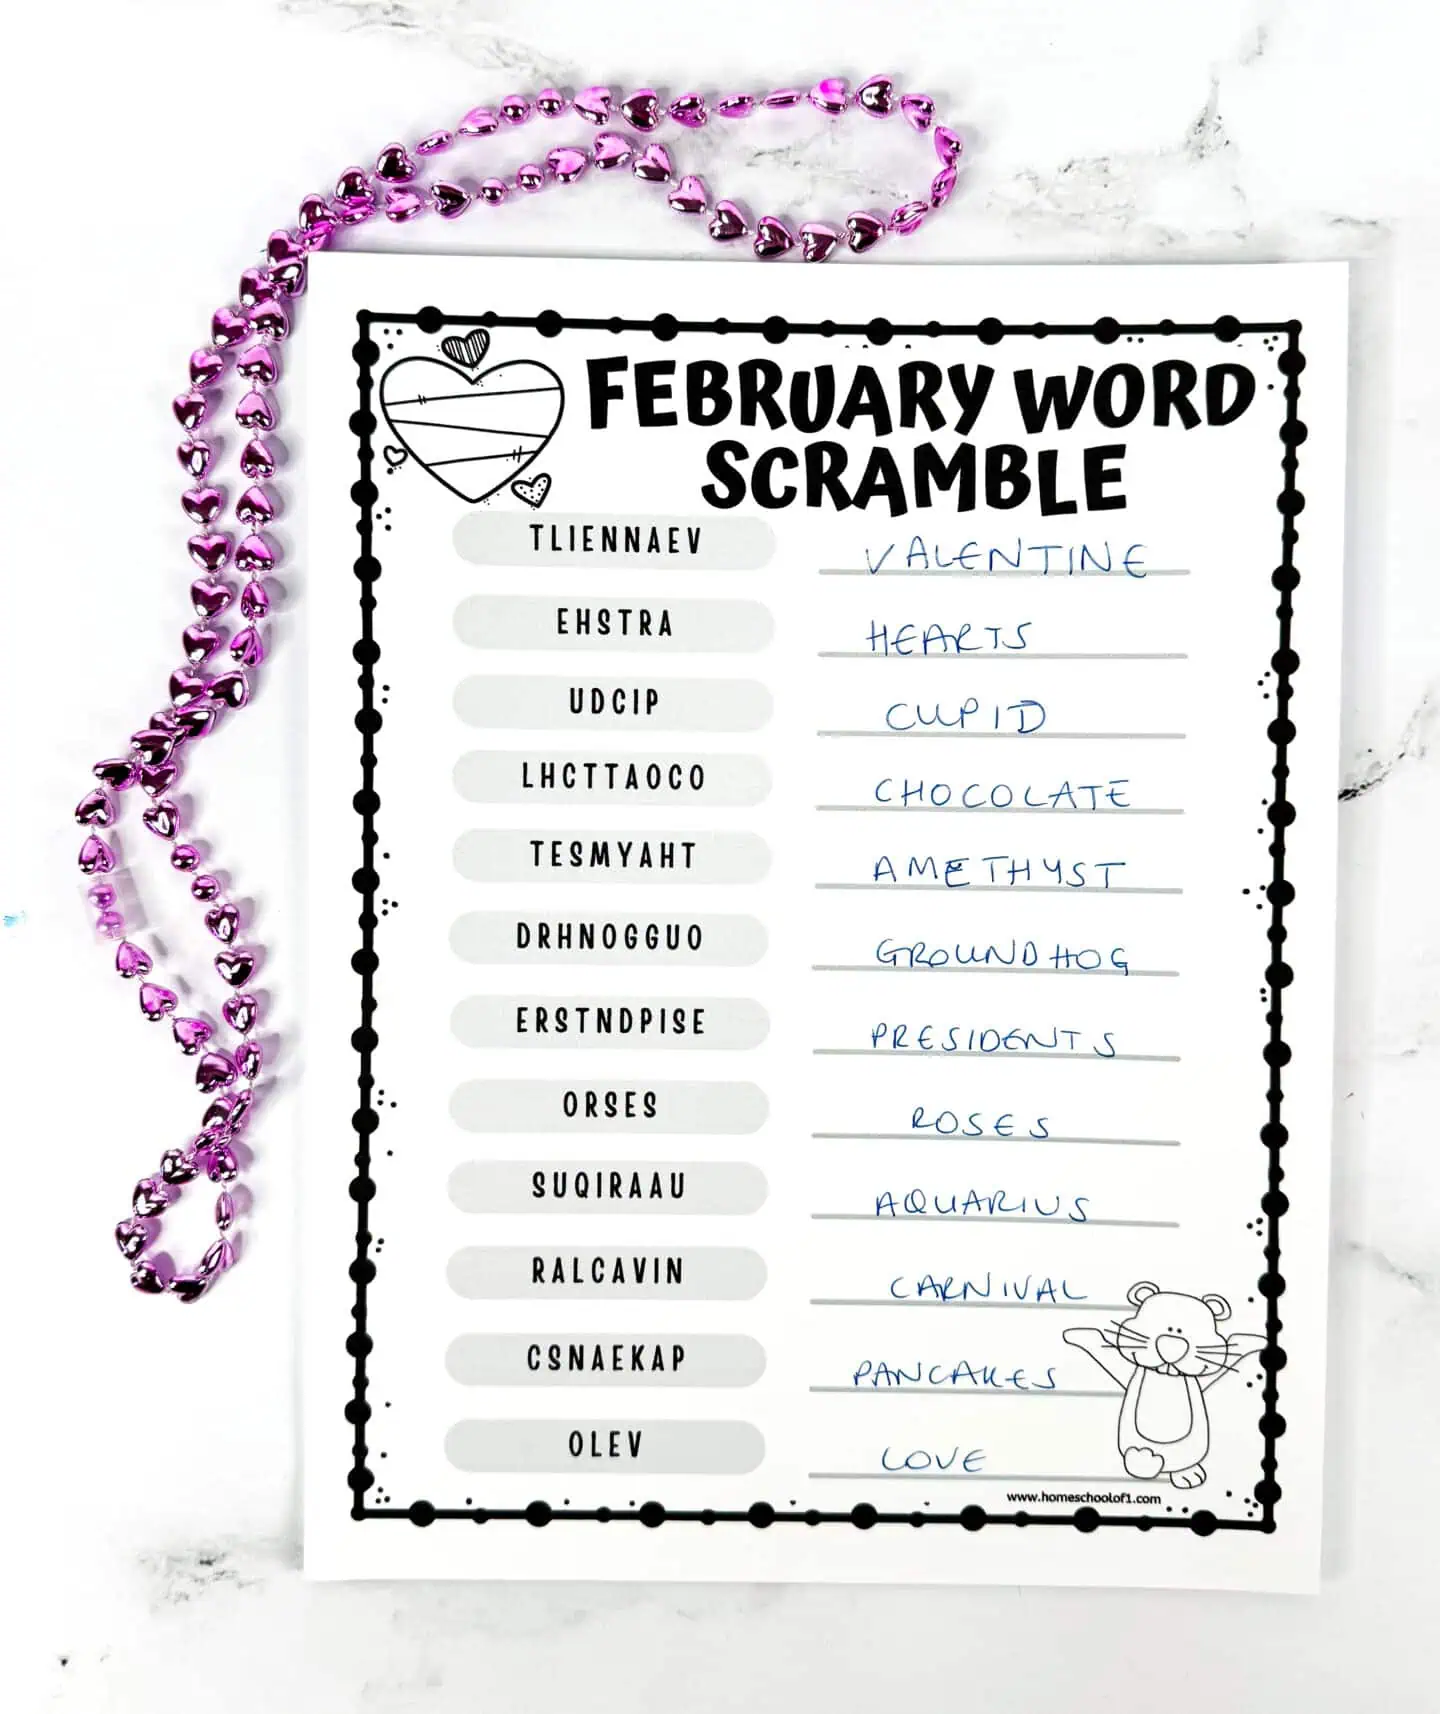 FEBRUARY WORD
SCRAMBLE
TLIENNAEV VALENTINE
EHSTRA HEARTS
UDCIP CUPID
LHCTTAOCO CHOCOLATE
TESMYAHT AMETHYST
DRHNOGGUO GROUNDHOG
ERSTNDPISE PRESIDENTS
ORSES ROSES
SUQIRAAU AQUARIUS
RALCAVIN CARNIVAL
CSNAEKAP PANCAKES
OLEV LOVE
www.homeschoolof1.com